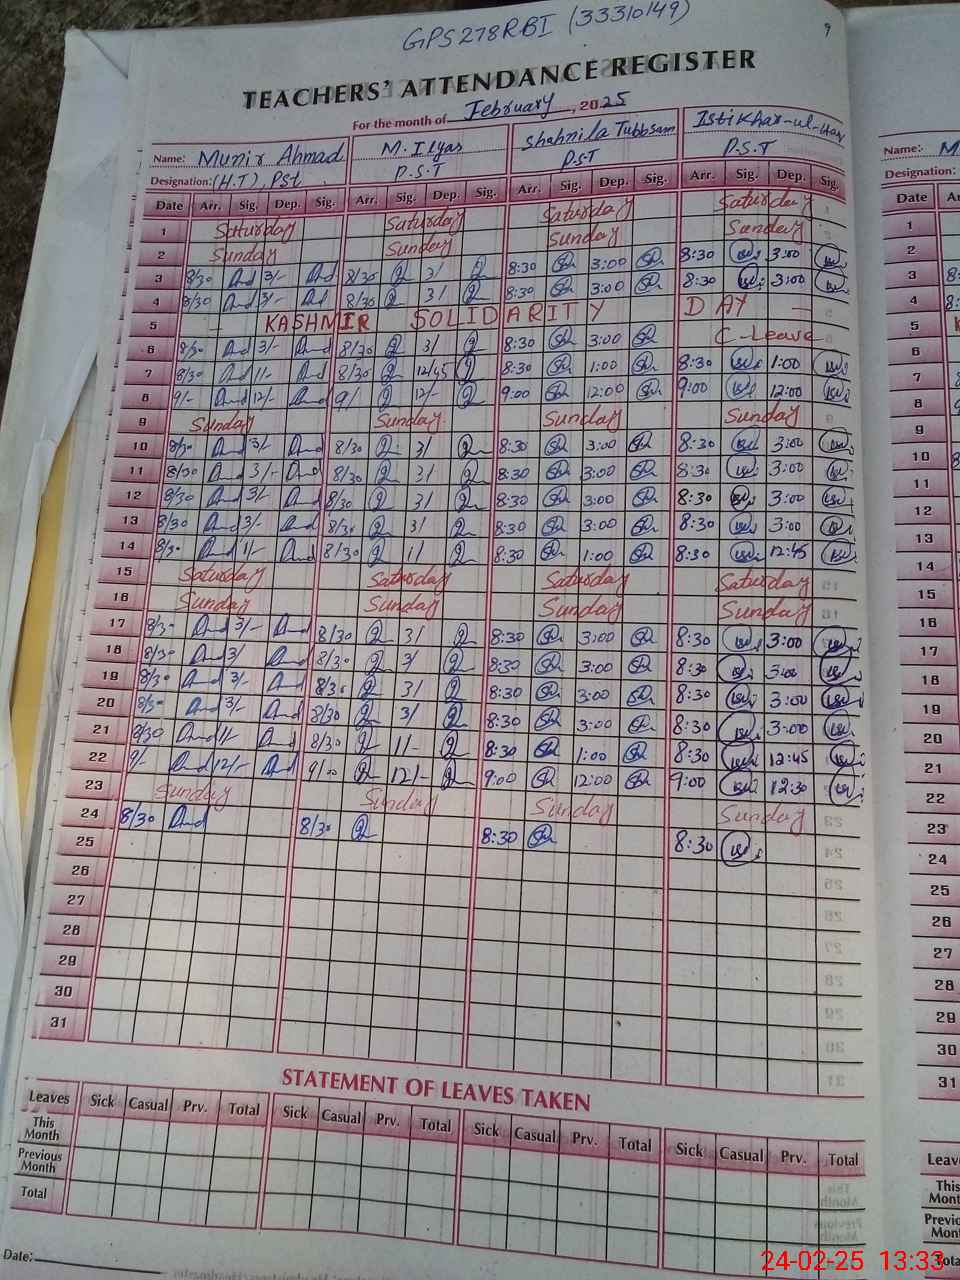 GPS 278 RBI (33310149)
9
TEACHERS' ATTENDANCE REGISTER
For the month of February, 2025
Name: Munir Ahmad M. Ilyas Shahnila Tubbsam Istikhar-ul-
Designation: (H.T), Pst P.S.T P.S.T P.S.T
Date Arr. Sig. Dep. Sig. Arr. Sig. Dep. Sig. Arr. Sig. Dep. Sig. Arr. Sig. Dep. Sig.
1 Saturday Saturday Saturday Saturday
2 Sunday Sunday Sunday Sunday
3 8/30 3/- 8/30 3/ 8:30 3:00 8:30 3:00
4 8/30 3/- 8/30 3/ 8:30 3:00 8:30 3:00
5 KASHMIR SOLIDARITY DAY
6 8/30 3/- 8/30 3/ 8:30 3:00 C-Leave
7 8/30 1/- 8/30 12/45 8:30 1:00 8:30 1:00
8 9/- 12/- 9/ 12/- 9:00 12:00 9:00 12:00
9 Sunday Sunday Sunday Sunday
10 8/30 3/- 8/30 3/ 8:30 3:00 8:30 3:00
11 8/30 3/- 8/30 3/ 8:30 3:00 8:30 3:00
12 8/30 3/- 8/30 3/ 8:30 3:00 8:30 3:00
13 8/30 3/- 8/30 3/ 8:30 3:00 8:30 3:00
14 8/30 1/- 8/30 1/ 8:30 1:00 8:30 12:45
15 Saturday Saturday Saturday Saturday
16 Sunday Sunday Sunday Sunday
17 8/30 3/- 8/30 3/ 8:30 3:00 8:30 3:00
18 8/30 3/ 8/30 3/ 8:30 3:00 8:30 3:00
19 8/30 3/- 8/30 3/ 8:30 3:00 8:30 3:00
20 8/30 3/- 8/30 3/ 8:30 3:00 8:30 3:00
21 8/30 1/- 8/30 1/- 8:30 1:00 8:30 12:45
22 9/- 12/- 9/00 12/- 9:00 12:00 9:00 12:30
23 Sunday Sunday Sunday Sunday
24 8/30 8/30 8:30 8:30
25
26
27
28
29
30
31
STATEMENT OF LEAVES TAKEN
Leaves Sick Casual Prv. Total Sick Casual Prv. Total Sick Casual Prv. Total Sick Casual Prv. Total
This Month
Previous Month
Total
Date:
Name: M
Designation:
Date A
1
2
3 8
4 8:
5
6
7
8
9
10
11
12
13
14
15
16
17
18
19
20
21
22
23
24
25
26
27
28
29
30
31
Leave
This
Mont
Previo
Mon
Tota
24-02-25 13:33